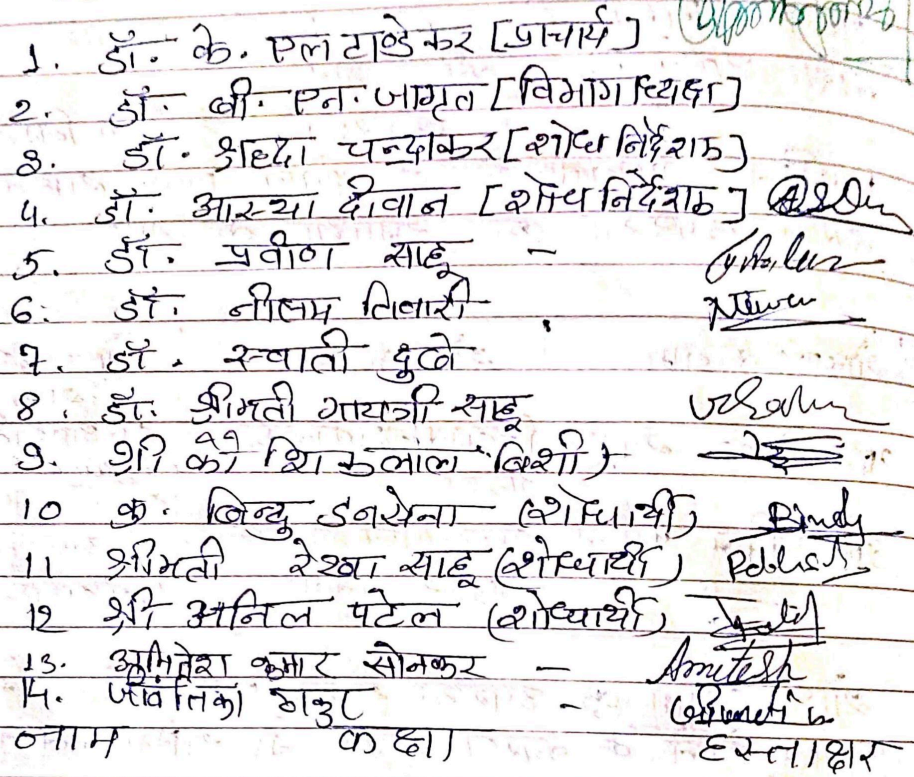 1. डॉ. के. एल टाण्डेकर [प्राचार्य]
2. डॉ. बी. एन. जागृत [विभागाध्यक्ष]
3. डॉ. श्रद्धा चन्द्राकर [शोध निर्देशक]
4. डॉ. आस्था दीवान [शोध निर्देशक]
5. डॉ. प्रवीण साहू -
6. डॉ. नीलम तिवारी
7. डॉ. स्वाती दुबे
8. डॉ. श्रीमती गायत्री साहू
9. श्री कौशिक लाल बिशी
10 कु. बिन्दु डनसेना (शोधार्थी) Bindu
11 श्रीमती रेखा साहू (शोधार्थी)
12 श्री अनिल पटेल (शोध्यार्थी)
13. अमितेश कुमार सोनकर - Amitesh
14. जीवंतिका ठाकुर -
नाम कक्षा हस्ताक्षर